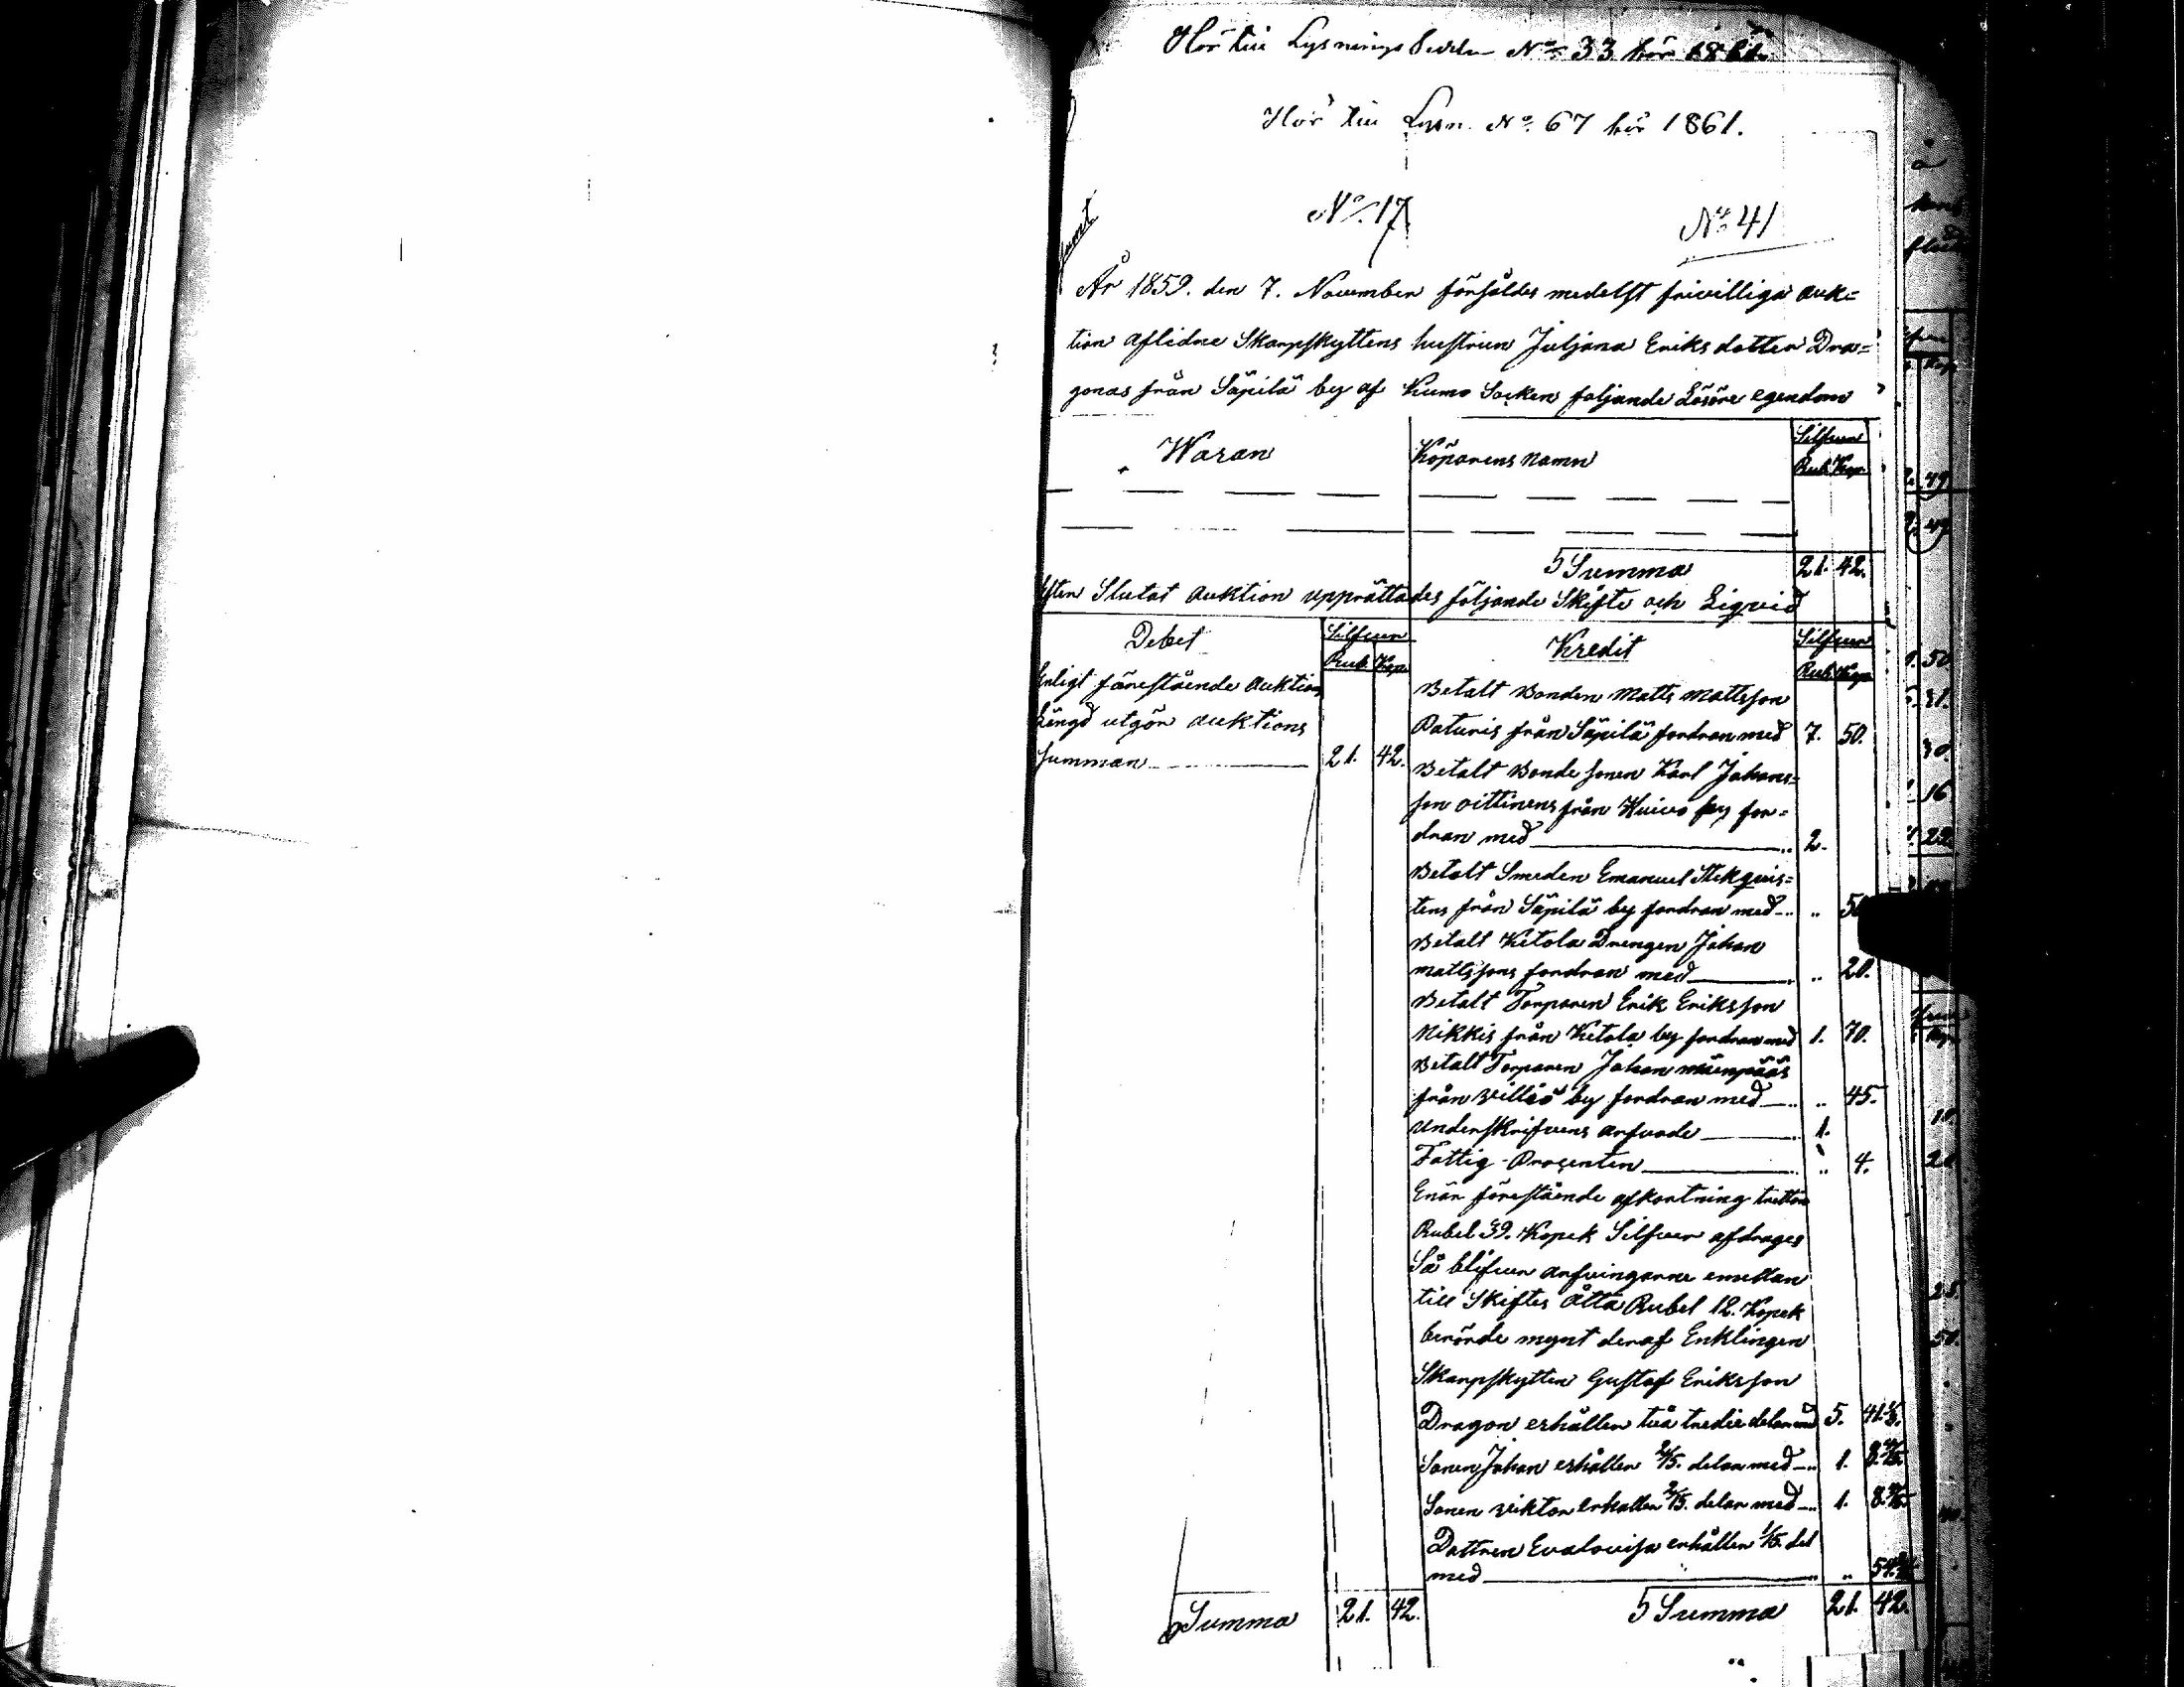 Hör till Lysnings Sedeln No 33 hör
Hör till Lysn. No. 67 hör 1861.
No. 17
No. 41
År 1859. den 7. November försåldes medelst frivilliga auk=
tion aflidne Skarpskyttens hustrun Juljana Eriksdotter Dra=
gonas från Säpilä by af Kumo Socken foljande Lösöre egendom
Waran
Köparens namn
Silfver
Rub. Kop.
S Summa 21. 42.
Efter Slutat auktion upprättades följande Skifte och Liqvid
Debet
Silfver
Rub. Kop.
Enligt förestående auktion
Längd utgör auktions
Summan 21. 42.
Kredit
Silfver
Rub. Kop.
Betalt Bonden Matts Mattsson
Paturis från Säpilä fordran med 7. 50.
Betalt Bonde sonen Karl Johans=
son oittinens från Kuivo by for=
dran med 2.
Betalt Smeden Emanuel Stekqvis=
tens från Säpilä by fordran med .. 50
Betalt Ketola Drengen Johan
mattssons fordran med .. 20.
Betalt Torparen Erik Eriksson
Nikkis från Ketola by fordran med 1. 70.
Betalt Torparen Johan
från Villiö by fordran med .. 45.
Underskrifvens arfvode 1.
Fattig-Procenten .. 4.
Enär förestående afkortning tretton
Rubel 39. Kopek Silfver afdrages
Så blifver arfvingarne emellan
till Skiftes Åtta Rubel 12. Kopek
berörde mynt deraf Enklingen
Skarpskytten Gustaf Eriksson
Dragon erhåller två tredie delar med 5. 41 1/3.
Sonen Johan erhåller 2/15. delar med 1. 8.
Sonen Viktor erhåller 2/15. delar med 1. 8.
Dottren Evalovisa erhåller 1/15. del
med .. 54
Summa 21. 42.
S Summa 21. 42.